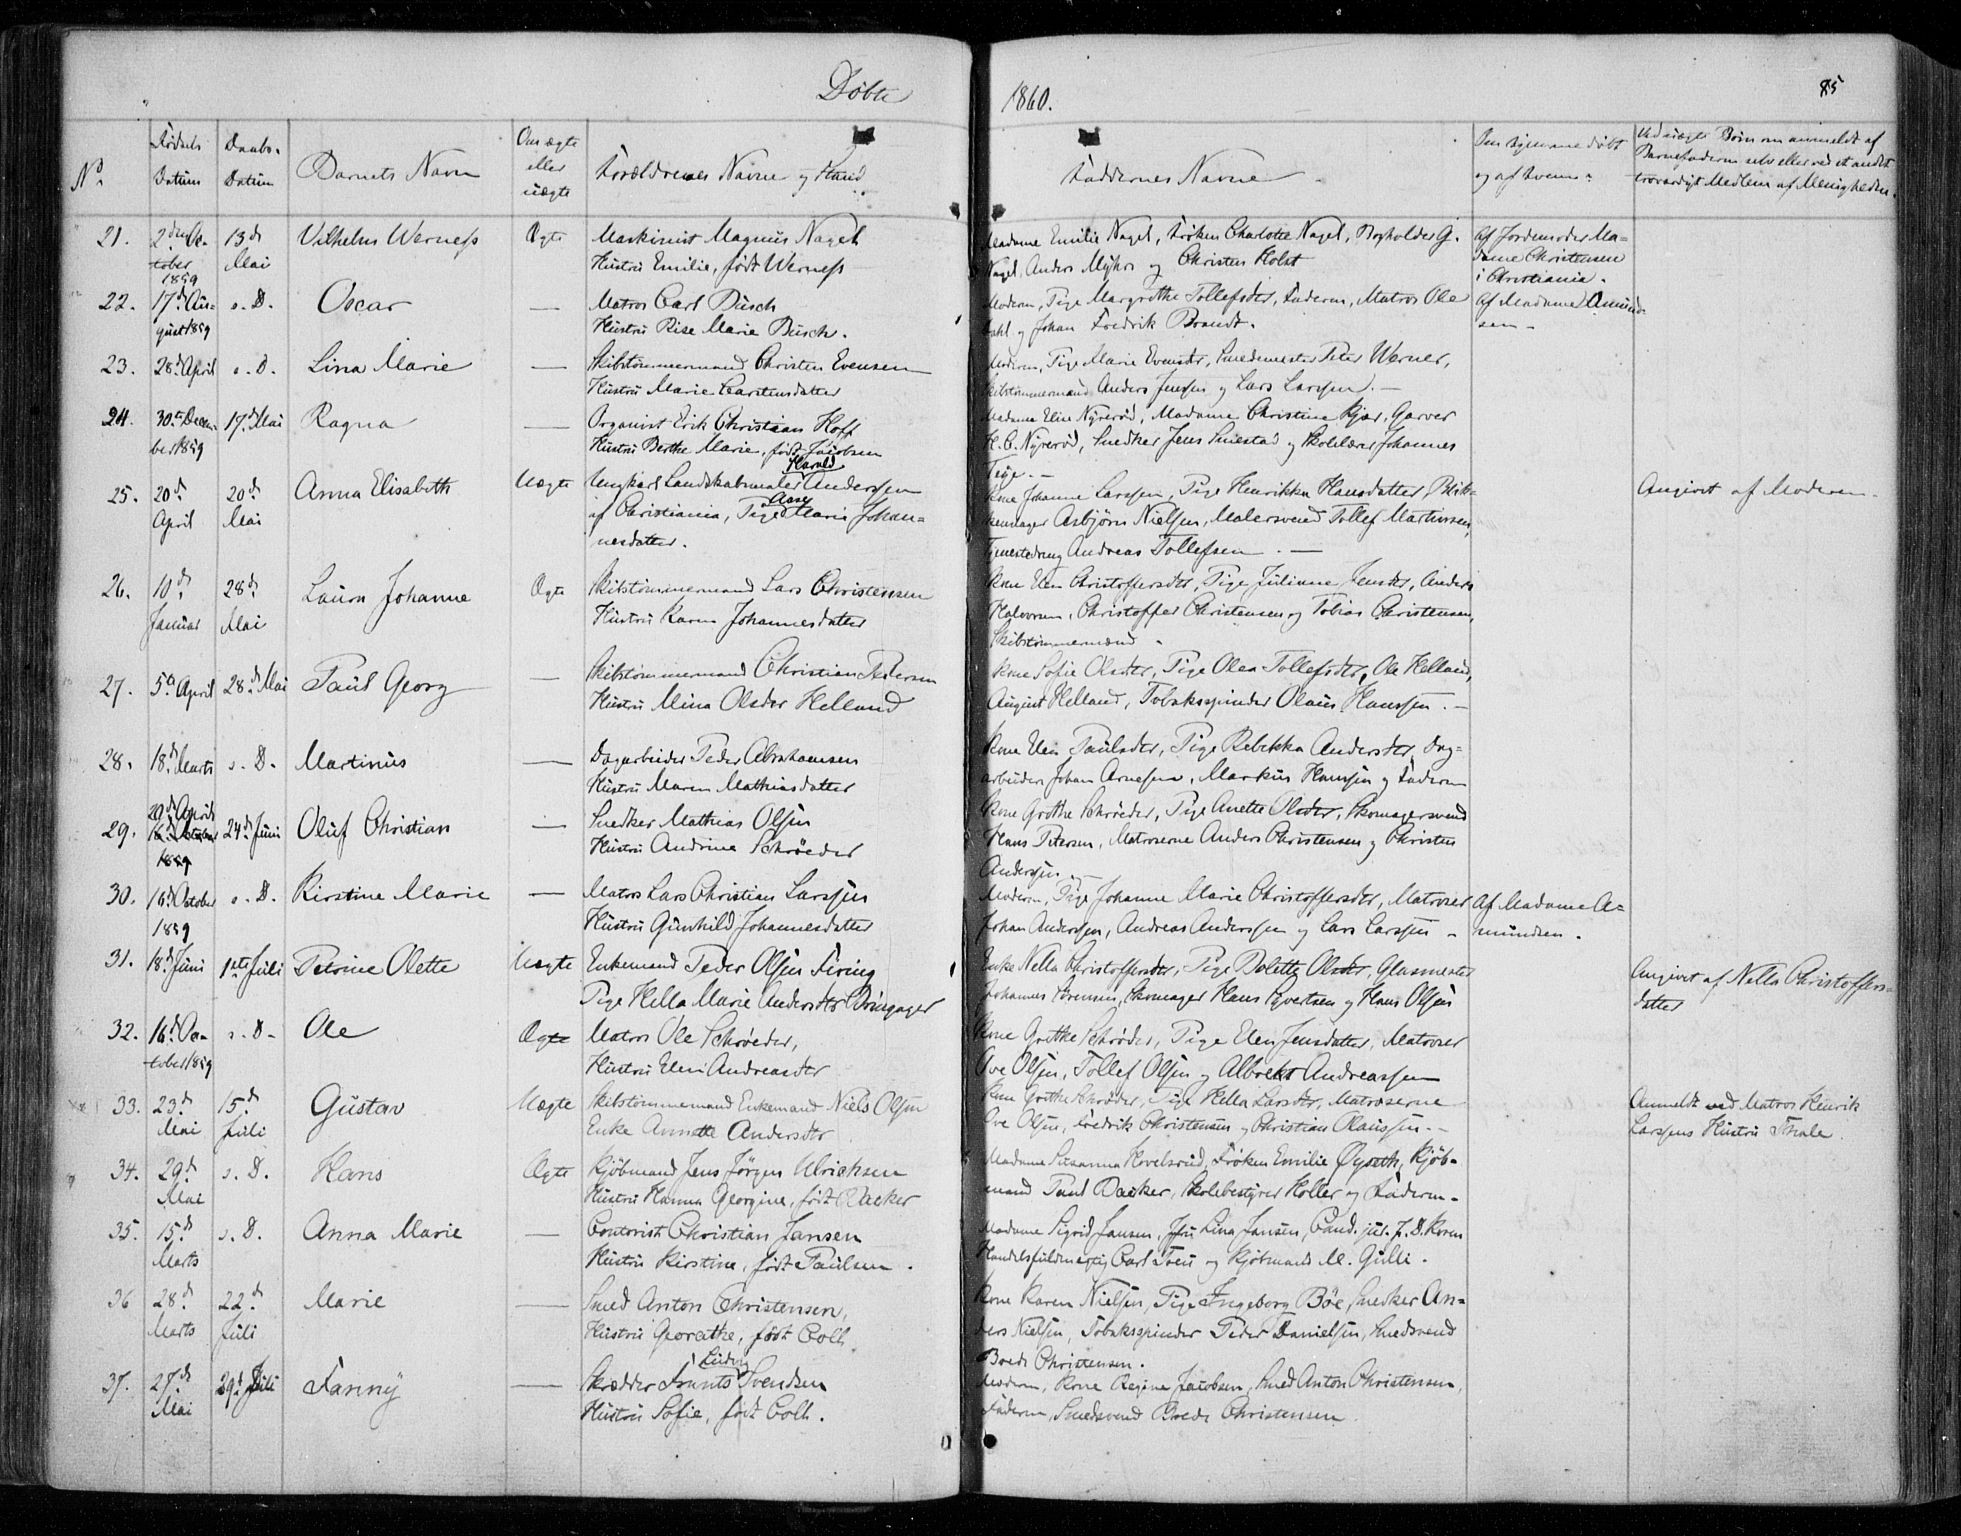 Døbte
1860.
85
No.
Fødsels Datum
Daabs-Datum
Barnets Navn
Om ægte eller uægte
Forældrenes Navne og Stand
Faddernes Navne
Om hjemme døbt og af hvem
Ved uægte Børn om anmeldt af Barnefaderen selv eller ved et andet troværdigt Medlem af Menigheden.
21. 2den October 1859 13de Mai Vilhelm Werness Ægte
Maskinist Magnus Nagel
Hustru Emilie, født Werness
Madame Emilie Nagel, Frøken Charlotte Nagel, Bogholder G.
Nagel, Anders Myhre og Christen Holst
Af Jordemoder Ma-
dame Christensen
i Christiania.
22. 17de August 1859 s. D. Oscar —
Matros Carl Busch
Hustru Rise Marie Busch.
Moderen, Pige Margrethe Tollefsdtr, Faderen, Matros Ole
Dahl og Johan Fredrik Brandt.
Af Madame Amund-
sen
23. 28de April s. D. Lina Marie —
Skibstømmermand Christen Evensen
Hustru Marie Carstensdatter
Moderen, Pige Marie Evensdtr, Smedemester Peter Werner,
Skibstømmermand Anders Jensen og Lars Larssen. —
24. 30te December 1859 17de Mai Ragna —
Organist Erik Christian Hoff
Hustru Berthe Marie, født Jacobsen
Madame Elise Nyrerød, Madame Christine Kjær, Garver
H. C. Nyrerød, Snedker Jens Smestad og Skolelærer Johannes
Teige. —
25. 20de April 20de Mai Anna Elisabeth Uægte
Ungkarl Landskabsmaler Harald Anderssen
af Christiania, Pige Aase Marie Johan-
nesdatter.
Kone Johanne Larssen, Pige Henrikka Hansdatter, Blik-
kenslager Asbjørn Nielsen, Malersvend Tollef Martinssen,
Tjenestedreng Andreas Tollefsen. —
Angivet af Moderen.
26. 10de Januar 28de Mai Laura Johanne Ægte
Skibstømmermand Lars Christensen
Hustru Karen Johannesdatter
Kone Elen Christoffersdtr, Pige Juliane Jensdtr, Anders
Halvorsen, Christoffer Christensen og Tobias Christensen,
Skibstømmermænd.
27. 5te April 28de Mai Paul Georg —
Skibstømmermand Christian Pedersen
Hustru Mina Olsdtr Helland
Kone Sofie Olsdtr, Pige Olea Tollefsdtr, Ole Helland,
August Helland, Tobaksspinder Olaus Hanssen. —
28. 18de Marts s. D. Martinius —
Dagarbeider Peder Abrahamsen
Hustru Maren Mathiasdatter
Kone Elen Paulsdtr, Pige Rebekka Andersdtr, Dag-
arbeider Johan Arnesen, Markus Hanssen og Faderen
29. 20de April 24de Juni Oluf Christian —
Snedker Mathias Olsen
Hustru Andrine Schrøeder
Kone Grethe Schrøeder, Pige Anette Olsdtr, Skomagersvend
Hans Petersen, Matroserne Anders Christensen og Christen
Anderssen.
30. 16de October 1859 s. D. Kirstine Marie —
Matros Lars Christian Larssen
Hustru Gunhild Johannesdatter
Moderen, Pige Johanne Marie Christoffersdtr, Matroser
Johan Anderssen, Andreas Anderssen og Lars Larssen
Af Madame A-
mundsen.
31. 18de Juni 1ste Juli Petrine Olette Uægte
Enkemand Peder Olsen Firing
Pige Hella Marie Andersdtr
Enke Nella Christoffersdtr, Pige Dolette Olsdtr, Glasmester
Johannes Sørensen, Skomager Hans Syvertsen og Hans Olsen
Angivet af Nella Christoffers-
datter
32. 16de October 1859 s. D. Ole Ægte
Matros Ole Schrøeder,
Hustru Elen Andreasdtr
Kone Grethe Schrøder, Pige Elen Jensdatter, Matroser
Ove Olsen, Tollef Olsen og Albrekt Andreassen
33. 23de Mai 15de Juli Gustav Uægte
Skibstømmermand Enkemand Niels Olsen
Enke Annette Andersdtr
Kone Grethe Schrøder, Pige Hella Larsdtr, Matroserne
Ove Olsen, Fredrik Christensen og Christian Olaussen. —
Anmeldt ved Matros Henrik
Larssens Hustru Thale.
34. 29de Mai s. D. Hans Ægte
Kjøbmand Jens Jørgen Ulrichsen
Hustru Hanna Georgine, født Backer
Madame Susanna Hovelsrud, Frøken Emilie Øyseth, Kjøb-
mand Paul Backer, Skolebestyrer Holler og Faderen.
35. 15de Marts s. D. Anna Marie —
Contorist Christian Jansen
Hustru Kirstine, født Paulsen.
Madame Sigrid Jansen, Jfru Lina Jansen, Cand. jur. P. D. Koren
Handelsfuldmægtig Carl Foen og Kjøbmand M. Gulli.
36 28de Marts 22de Juli Marie —
Smed Anton Christensen,
Hustru Georathe, født Coll,
Kone Karen Nielsen, Pige Ingeborg Bøe, Snedker An-
ders Nielsen, Tobaksspinder Peder Danielsen, Smedsvend
Brede Christensen.
37. 27de Mai 29de Juli Fanny —
Skrædder Frants Ludvig Svendsen
Hustru Sofie, født Coll.
Moderen, Kone Regine Jacobsen, Smed Anton Christensen,
Faderen, Smedsvend Brede Christensen